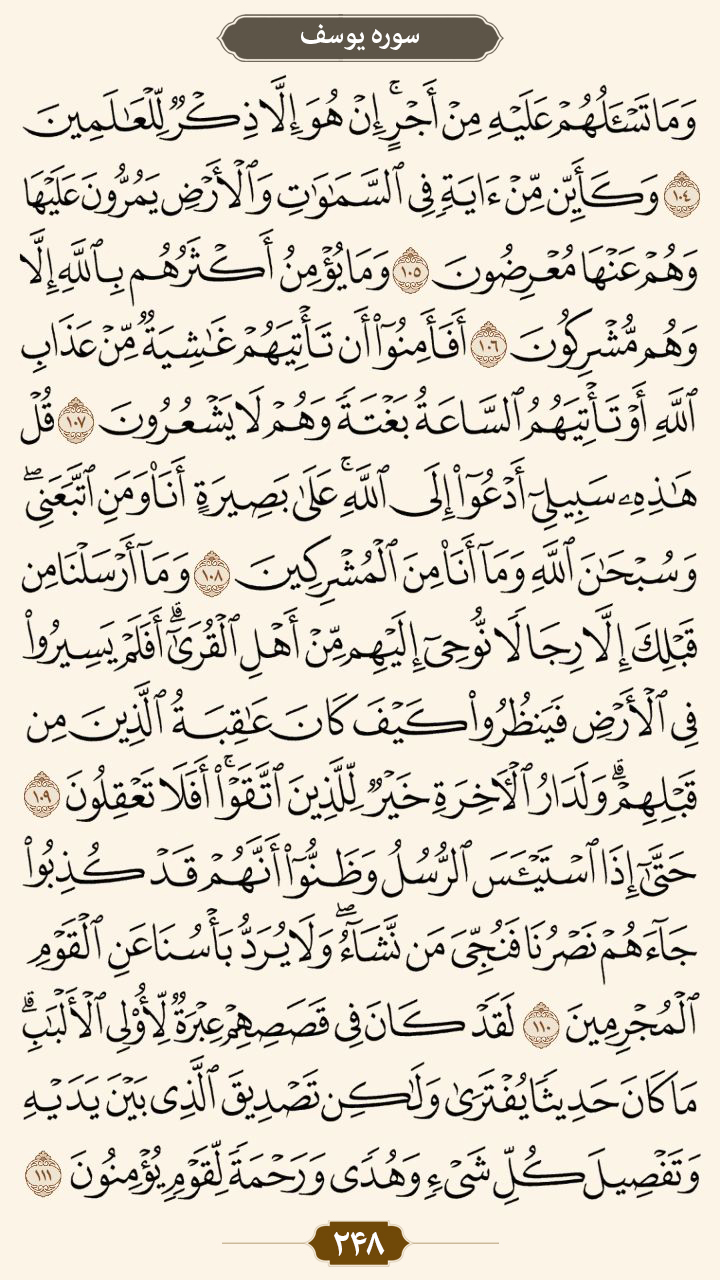 سوره یوسف
وَمَا تَسْـَٔلُهُمْ عَلَيْهِ مِنْ أَجْرٍ ۚ إِنْ هُوَ إِلَّا ذِكْرٌ لِّلْعَـٰلَمِينَ
١٠٤ وَكَأَيِّن مِّنْ ءَايَةٍ فِى ٱلسَّمَـٰوَٰتِ وَٱلْأَرْضِ يَمُرُّونَ عَلَيْهَا
وَهُمْ عَنْهَا مُعْرِضُونَ ١٠٥ وَمَا يُؤْمِنُ أَكْثَرُهُم بِٱللَّهِ إِلَّا
وَهُم مُّشْرِكُونَ ١٠٦ أَفَأَمِنُوٓا۟ أَن تَأْتِيَهُمْ غَـٰشِيَةٌ مِّنْ عَذَابِ
ٱللَّهِ أَوْ تَأْتِيَهُمُ ٱلسَّاعَةُ بَغْتَةً وَهُمْ لَا يَشْعُرُونَ ١٠٧ قُلْ
هَـٰذِهِۦ سَبِيلِىٓ أَدْعُوٓا۟ إِلَى ٱللَّهِ ۚ عَلَىٰ بَصِيرَةٍ أَنَا۠ وَمَنِ ٱتَّبَعَنِى ۖ
وَسُبْحَـٰنَ ٱللَّهِ وَمَآ أَنَا۠ مِنَ ٱلْمُشْرِكِينَ ١٠٨ وَمَآ أَرْسَلْنَا مِن
قَبْلِكَ إِلَّا رِجَالًا نُّوحِىٓ إِلَيْهِم مِّنْ أَهْلِ ٱلْقُرَىٰٓ ۗ أَفَلَمْ يَسِيرُوا۟
فِى ٱلْأَرْضِ فَيَنظُرُوا۟ كَيْفَ كَانَ عَـٰقِبَةُ ٱلَّذِينَ مِن
قَبْلِهِمْ ۗ وَلَدَارُ ٱلْـَٔاخِرَةِ خَيْرٌ لِّلَّذِينَ ٱتَّقَوْا۟ ۚ أَفَلَا تَعْقِلُونَ ١٠٩
حَتَّىٰٓ إِذَا ٱسْتَيْـَٔسَ ٱلرُّسُلُ وَظَنُّوٓا۟ أَنَّهُمْ قَدْ كُذِبُوا۟
جَآءَهُمْ نَصْرُنَا فَنُجِّىَ مَن نَّشَآءُ ۖ وَلَا يُرَدُّ بَأْسُنَا عَنِ ٱلْقَوْمِ
ٱلْمُجْرِمِينَ ١١٠ لَقَدْ كَانَ فِى قَصَصِهِمْ عِبْرَةٌ لِّأُو۟لِى ٱلْأَلْبَـٰبِ ۗ
مَا كَانَ حَدِيثًا يُفْتَرَىٰ وَلَـٰكِن تَصْدِيقَ ٱلَّذِى بَيْنَ يَدَيْهِ
وَتَفْصِيلَ كُلِّ شَىْءٍ وَهُدًى وَرَحْمَةً لِّقَوْمٍ يُؤْمِنُونَ ١١١
۲۴۸